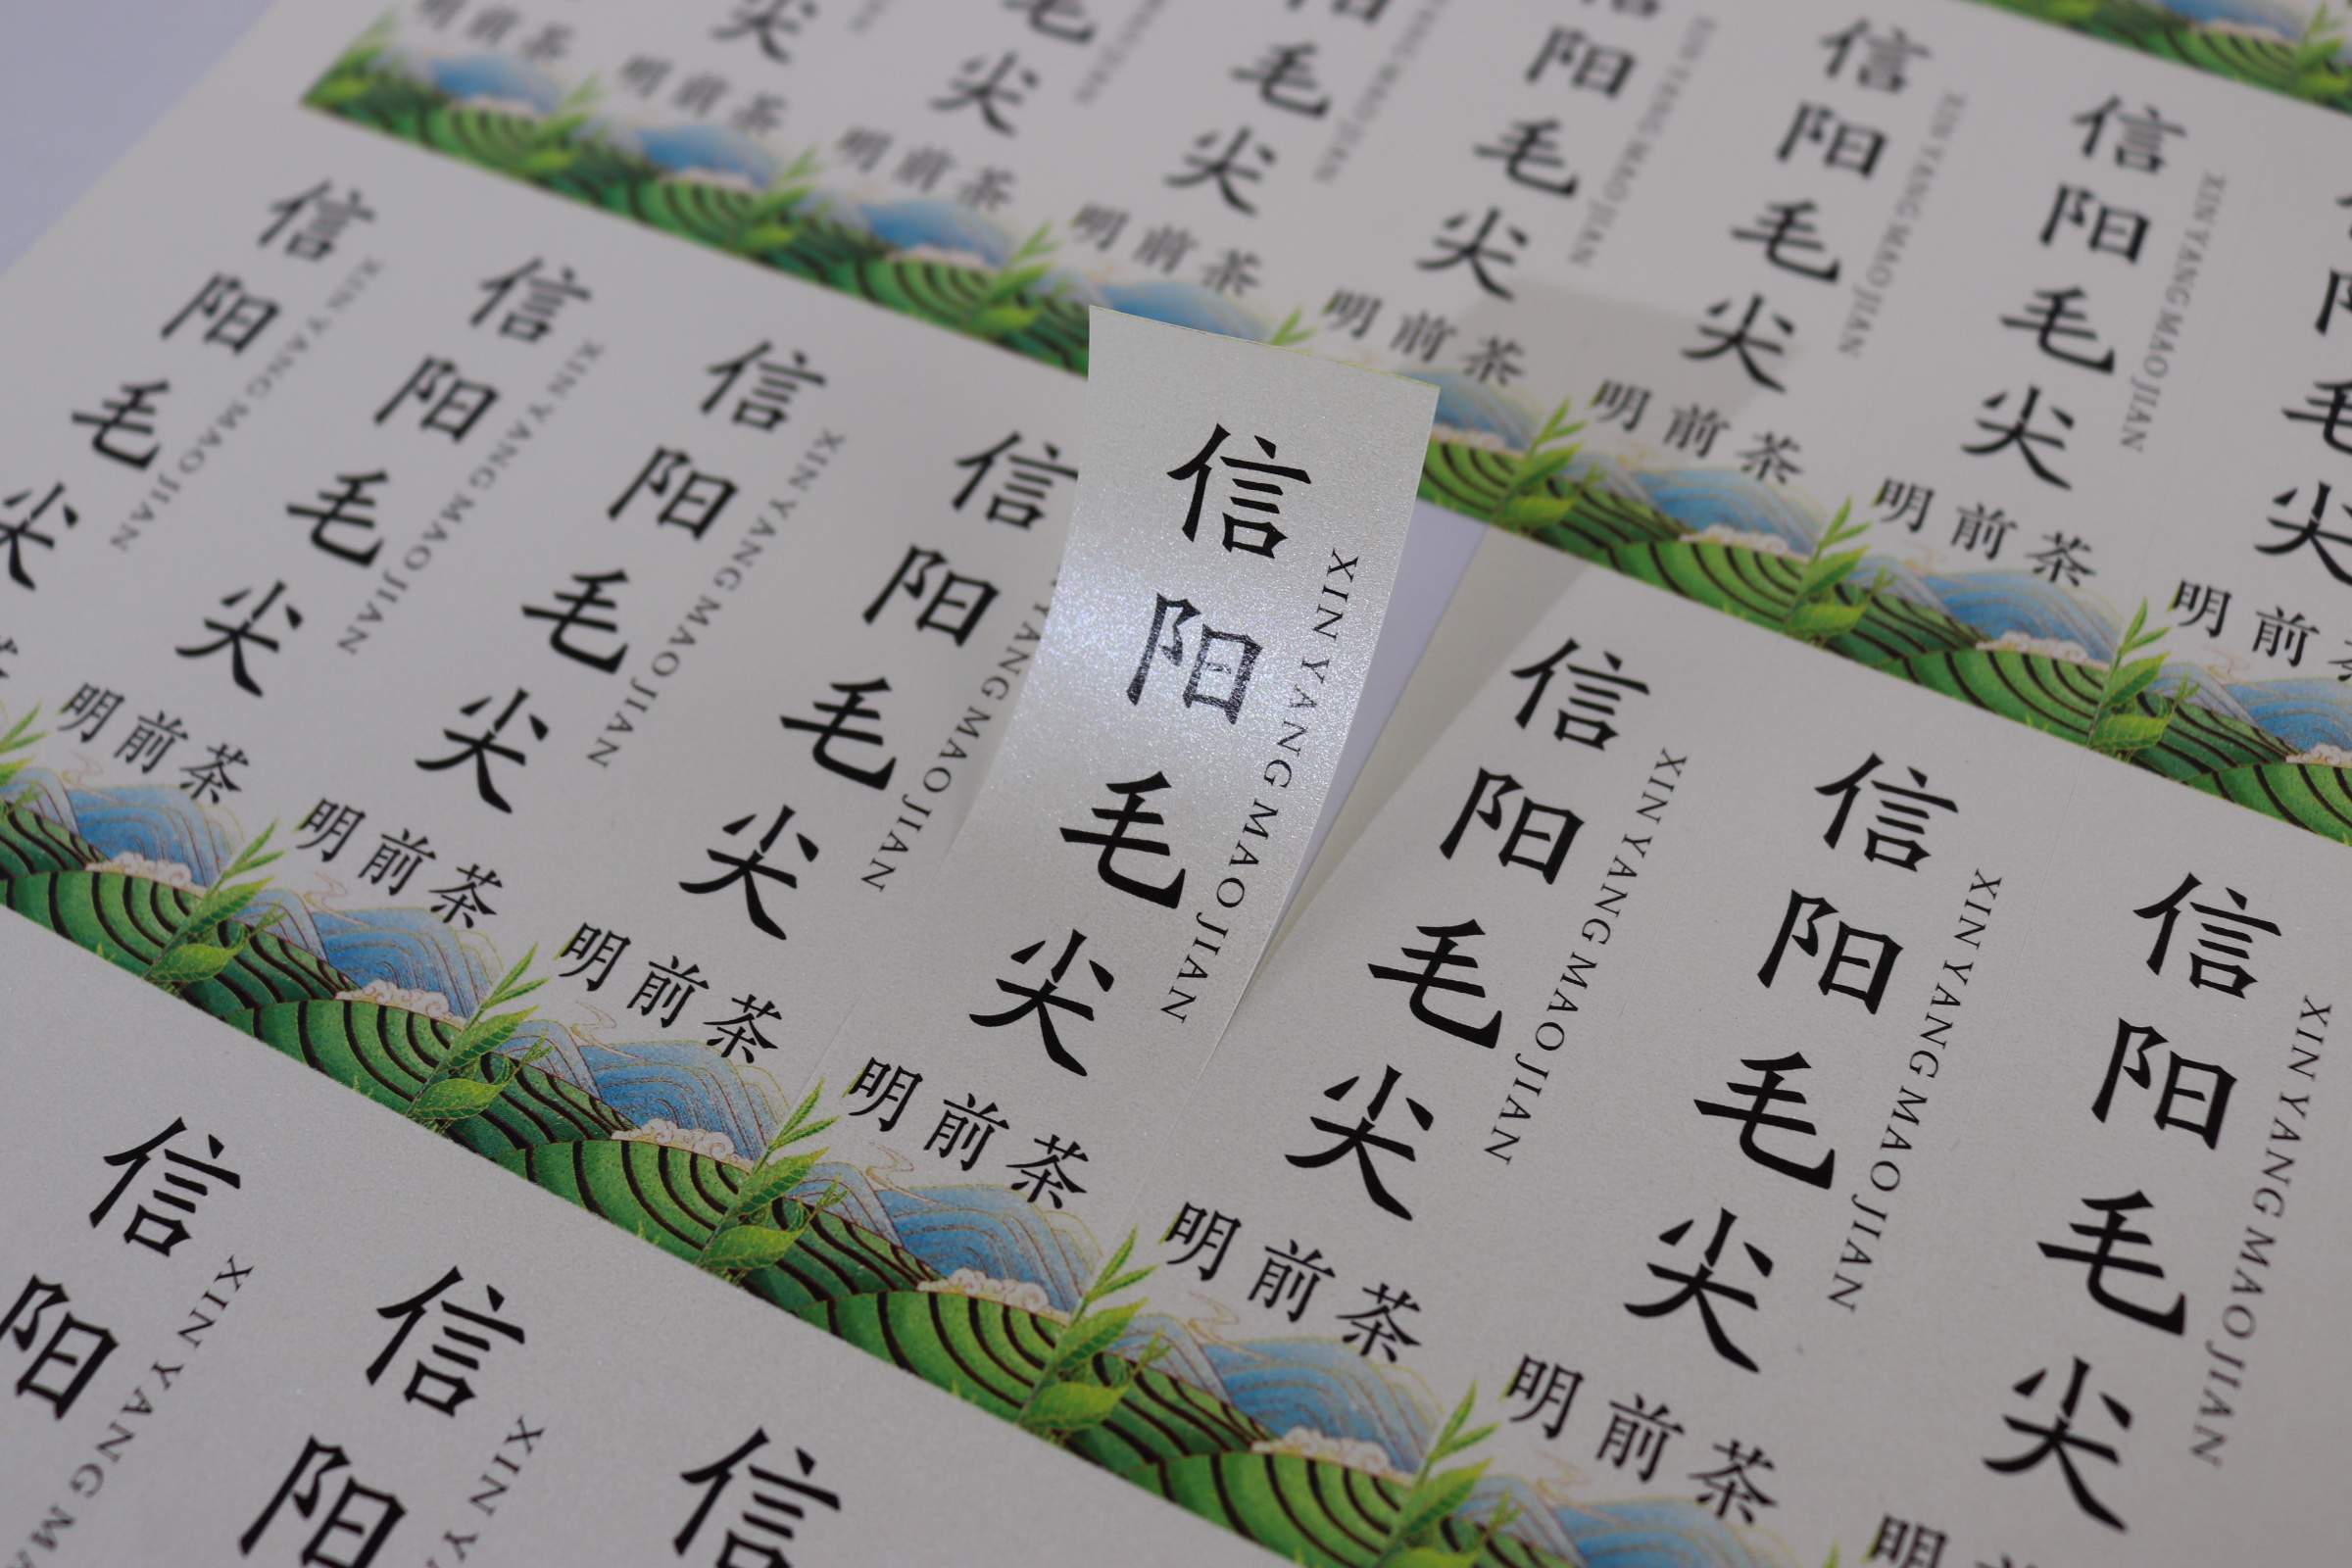 信阳毛尖
XIN YANG MAO JIAN
明前茶
信阳毛尖
XIN YANG MAO JIAN
明前茶
信阳毛尖
XIN YANG MAO JIAN
明前茶
信阳毛尖
XIN YANG MAO JIAN
明前茶
信阳毛尖
XIN YANG MAO JIAN
明前茶
信阳毛尖
XIN YANG MAO JIAN
明前茶
信阳毛尖
XIN YANG MAO JIAN
明前茶
信阳毛尖
XIN YANG MAO JIAN
明前茶
信阳毛尖
XIN YANG MAO JIAN
明前茶
信阳毛尖
XIN YANG MAO JIAN
明前茶
信阳
XIN YANG
信阳
XIN Y
信